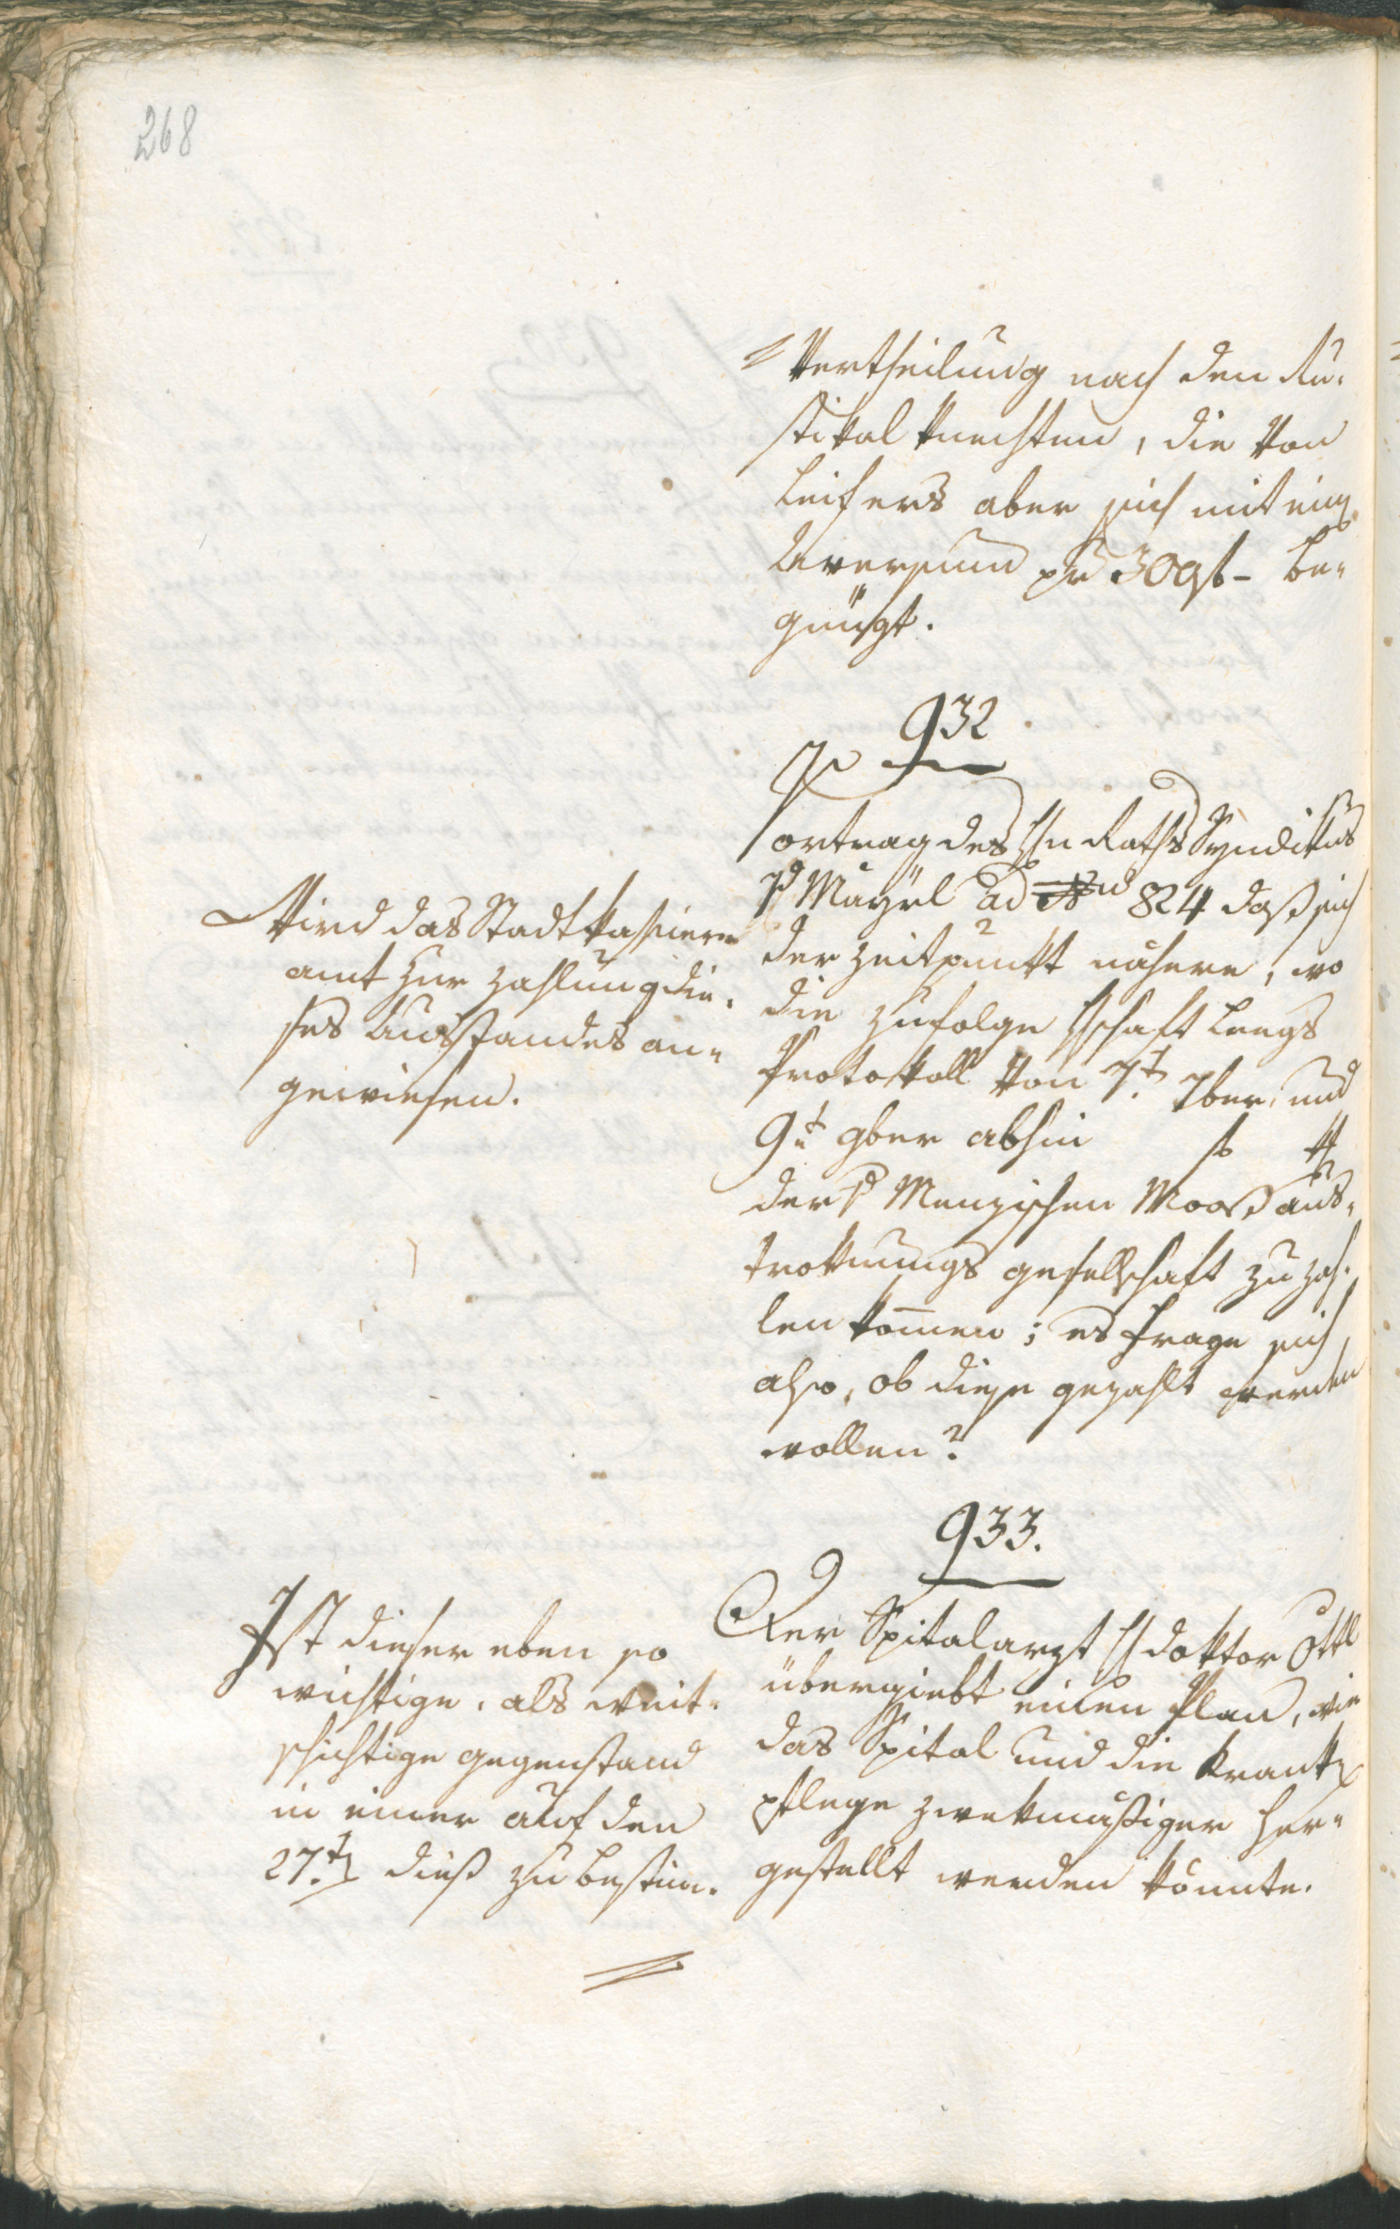 268
Vertheilung nach den Ru-
stikal Knechten, die von
Leifers aber sich mit einem
Aversum pr 30 f – be-
gnügt.
932
Vortrag des Hn Raths Syndikus
Mayrl ad Num 824 daß sich
der Zeitpunkt nähere, wo
die zufolge
Protokoll von 7t 7ber, und
9t 9ber abhin f x
der Menzischen Moosaus-
troknungs gesellschaft zu zah-
len kom̄en; es frage sich
also, ob diese gezahlt werden
wollen?
Wird das Stadtkassier-
amt zur Zahlung die-
ses Ausstandes an-
gewiesen.
933.
Der Spitalarzt H Doktor Ottl
übergiebt einen Plan, wie
das Spital und die Kranken
pflege zwekmäßiger her-
gestellt werden könnte.
Ist dieser eben so
wichtige, als weit-
schichtige Gegenstand
in einer auf den
27.ten dieß zu bestim-